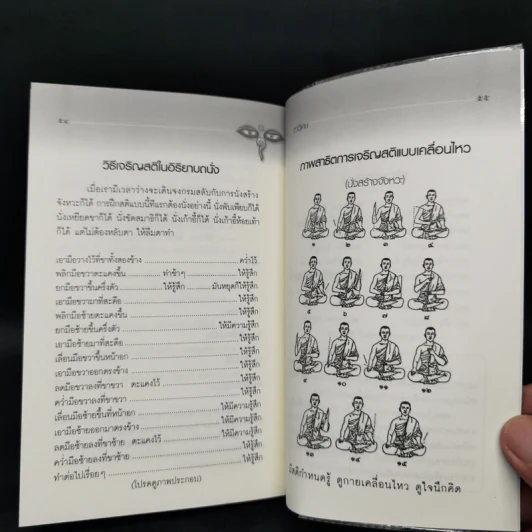 ๕๔
วิธีเจริญสติในอิริยาบถนั่ง
เมื่อเรามีเวลาว่างจะเดินจงกรมสลับกับการนั่งสร้าง
จังหวะก็ได้ การฝึกสติแบบนี้ที่แรกต้องนั่งอย่างนี้ นั่งพับเพียบก็ได้
นั่งเหยียดขาก็ได้ นั่งขัดสมาธิก็ได้ นั่งเก้าอี้ก็ได้ นั่งเก้าอี้ห้อยเท้า
ก็ได้ แต่ไม่ต้องหลับตา ให้ลืมตาทำ
เอามือวางไว้ที่ขาทั้งสองข้าง ................ คว่ำไว้
พลิกมือขวาตะแคงขึ้น ............ ทำช้าๆ ............ ให้รู้สึก
ยกมือขวาขึ้นครึ่งตัว ............ ให้รู้สึก ............ มันหยุดก็ให้รู้สึก
เอามือขวามาที่สะดือ ................ ให้รู้สึก
พลิกมือซ้ายตะแคงขึ้น ................ ให้รู้สึก
ยกมือซ้ายขึ้นครึ่งตัว ................ ให้มีความรู้สึก
เอามือซ้ายมาที่สะดือ ................ ให้รู้สึก
เลื่อนมือขวาขึ้นหน้าอก ................ ให้รู้สึก
เอามือขวาออกตรงข้าง ................ ให้รู้สึก
ลดมือขวาลงที่ขาขวา ตะแคงไว้ ................ ให้รู้สึก
คว่ำมือขวาลงที่ขาขวา ................ ให้รู้สึก
เลื่อนมือซ้ายขึ้นที่หน้าอก ................ ให้มีความรู้สึก
เอามือซ้ายออกมาตรงข้าง ................ ให้มีความรู้สึก
ลดมือซ้ายลงที่ขาซ้าย ตะแคงไว้ ................ ให้มีความรู้สึก
คว่ำมือซ้ายลงที่ขาซ้าย ................ ให้มีความรู้สึก
ทำต่อไปเรื่อยๆ ................ ให้รู้สึก
(โปรดดูภาพประกอบ)
๕๕
ภาพสาธิตการเจริญสติแบบเคลื่อนไหว
(นั่งสร้างจังหวะ)
๑ ๒ ๓ ๔
๕ ๖ ๗ ๘
๙ ๑๐ ๑๑ ๑๒
๑๓ ๑๔ ๑๕
สติกำหนดรู้ ดูกายเคลื่อนไหว ดูใจนึกคิด